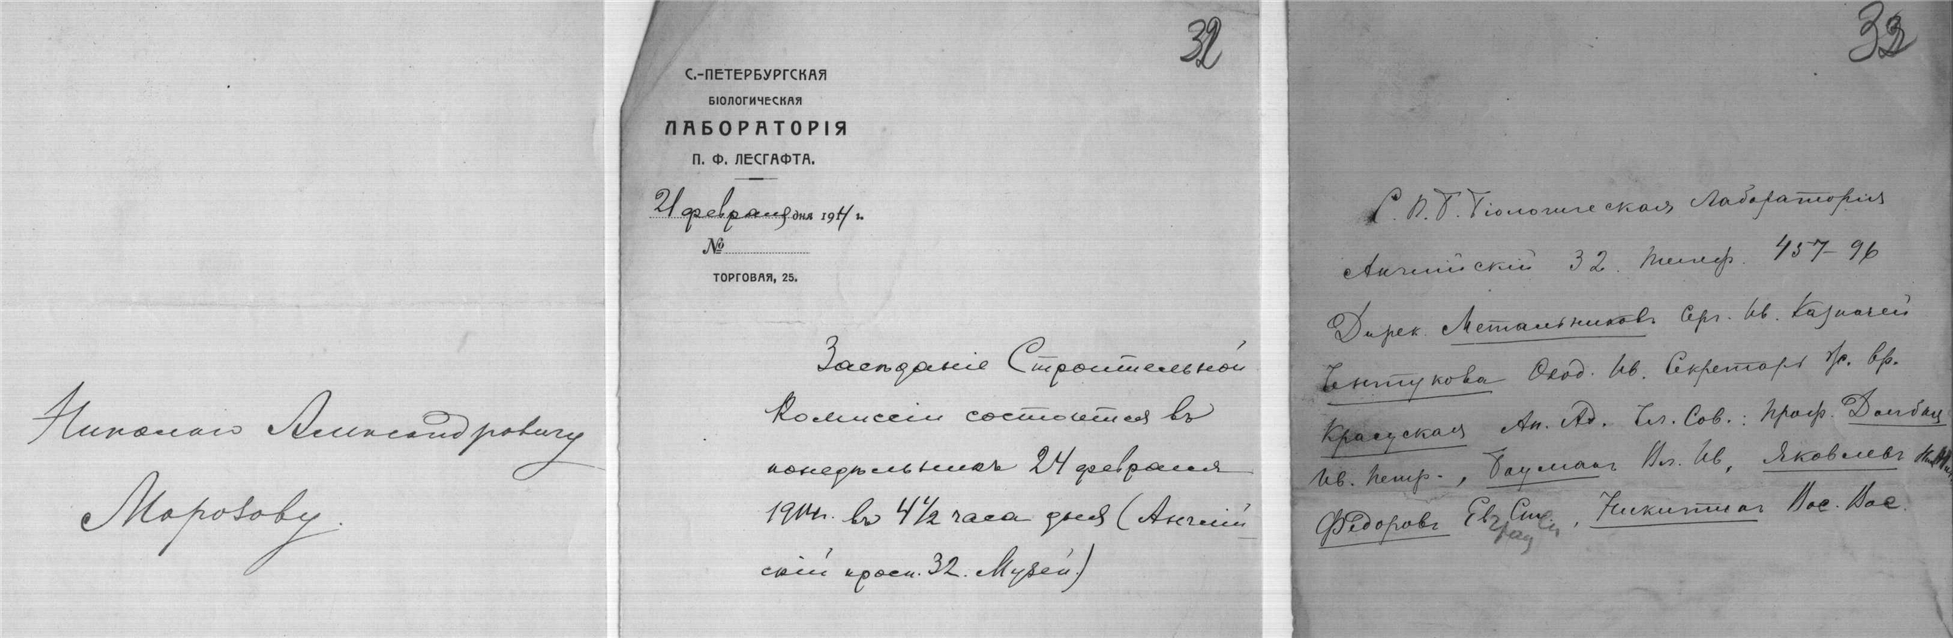 Николаю Александровичу
Морозову.
32
С.-ПЕТЕРБУРГСКАЯ
БІОЛОГИЧЕСКАЯ
ЛАБОРАТОРІЯ
П. Ф. ЛЕСГАФТА.
21 февраля дня 1914 г.
№
ТОРГОВАЯ, 25.
Засѣданіе Строительной
Комиссіи состоится въ
понедѣльникъ 24 февраля
1914 г. въ 4 1/2 часа дня (Англій
скій просп. 32. Музей.)
33
С. П. Б. Біологическая Лабораторія
Англійскій 32. телеф. 457-96
Дирек. Метальниковъ Серг. Ив. Казначей
Ив. Секретарь вр.
Красуская Ан. Ад. Чл. Сов.: Проф. Долбня
Ив. Петр., Бауманъ Вл. Ив, Яковлевъ
Федоровъ Евграфъ Ст., Никитинъ Вас. Вас.